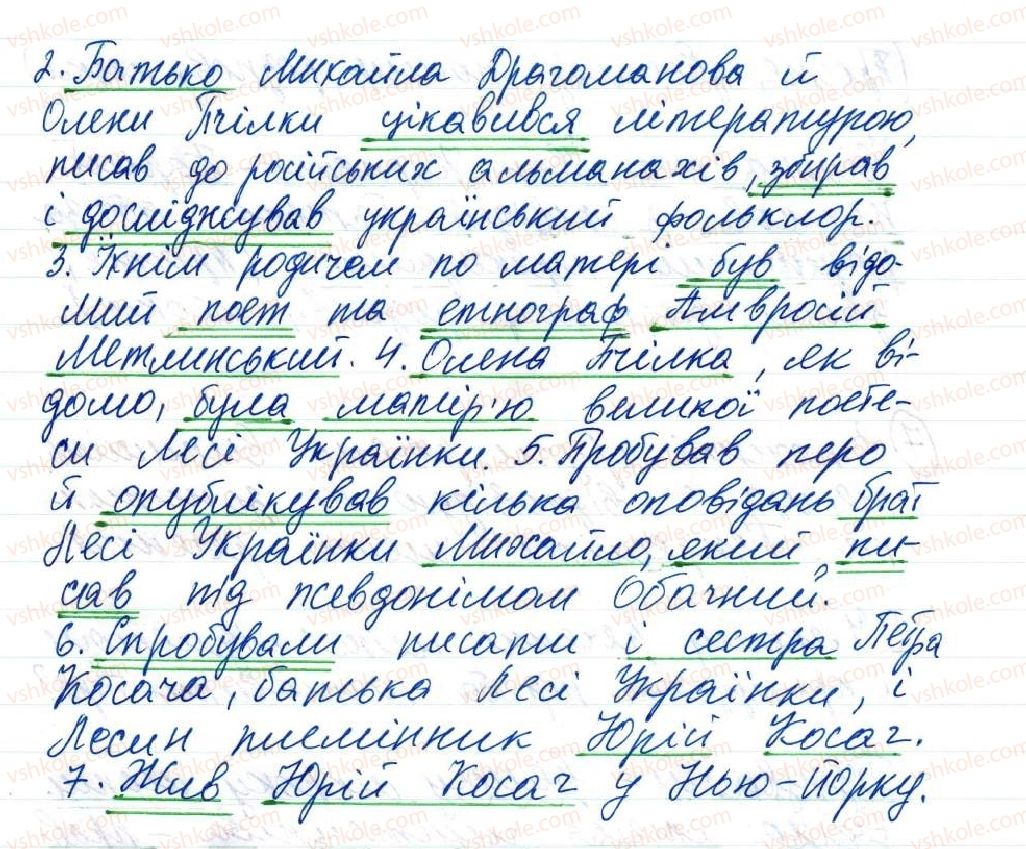 2. Батько Михайла Драгоманова й
Олени Пчілки цікавився літературою,
писав до російських альманахів, збирав
і досліджував український фольклор.
3. Їхнім родичем по матері був відо-
мий поет та етнограф Амвросій
Метлинський. 4. Олена Пчілка, як ві-
домо, була матір'ю великої поете-
си Лесі Українки. 5. Пробував перо
й опублікував кілька оповідань брат
Лесі Українки Михайло, який пи-
сав під псевдонімом Обачний.
6. Спробували писати і сестра Петра
Косача, батька Лесі Українки, і
Лесин племінник Юрій Косач.
7. Жив Юрій Косач у Нью-Йорку.
vshkole.com